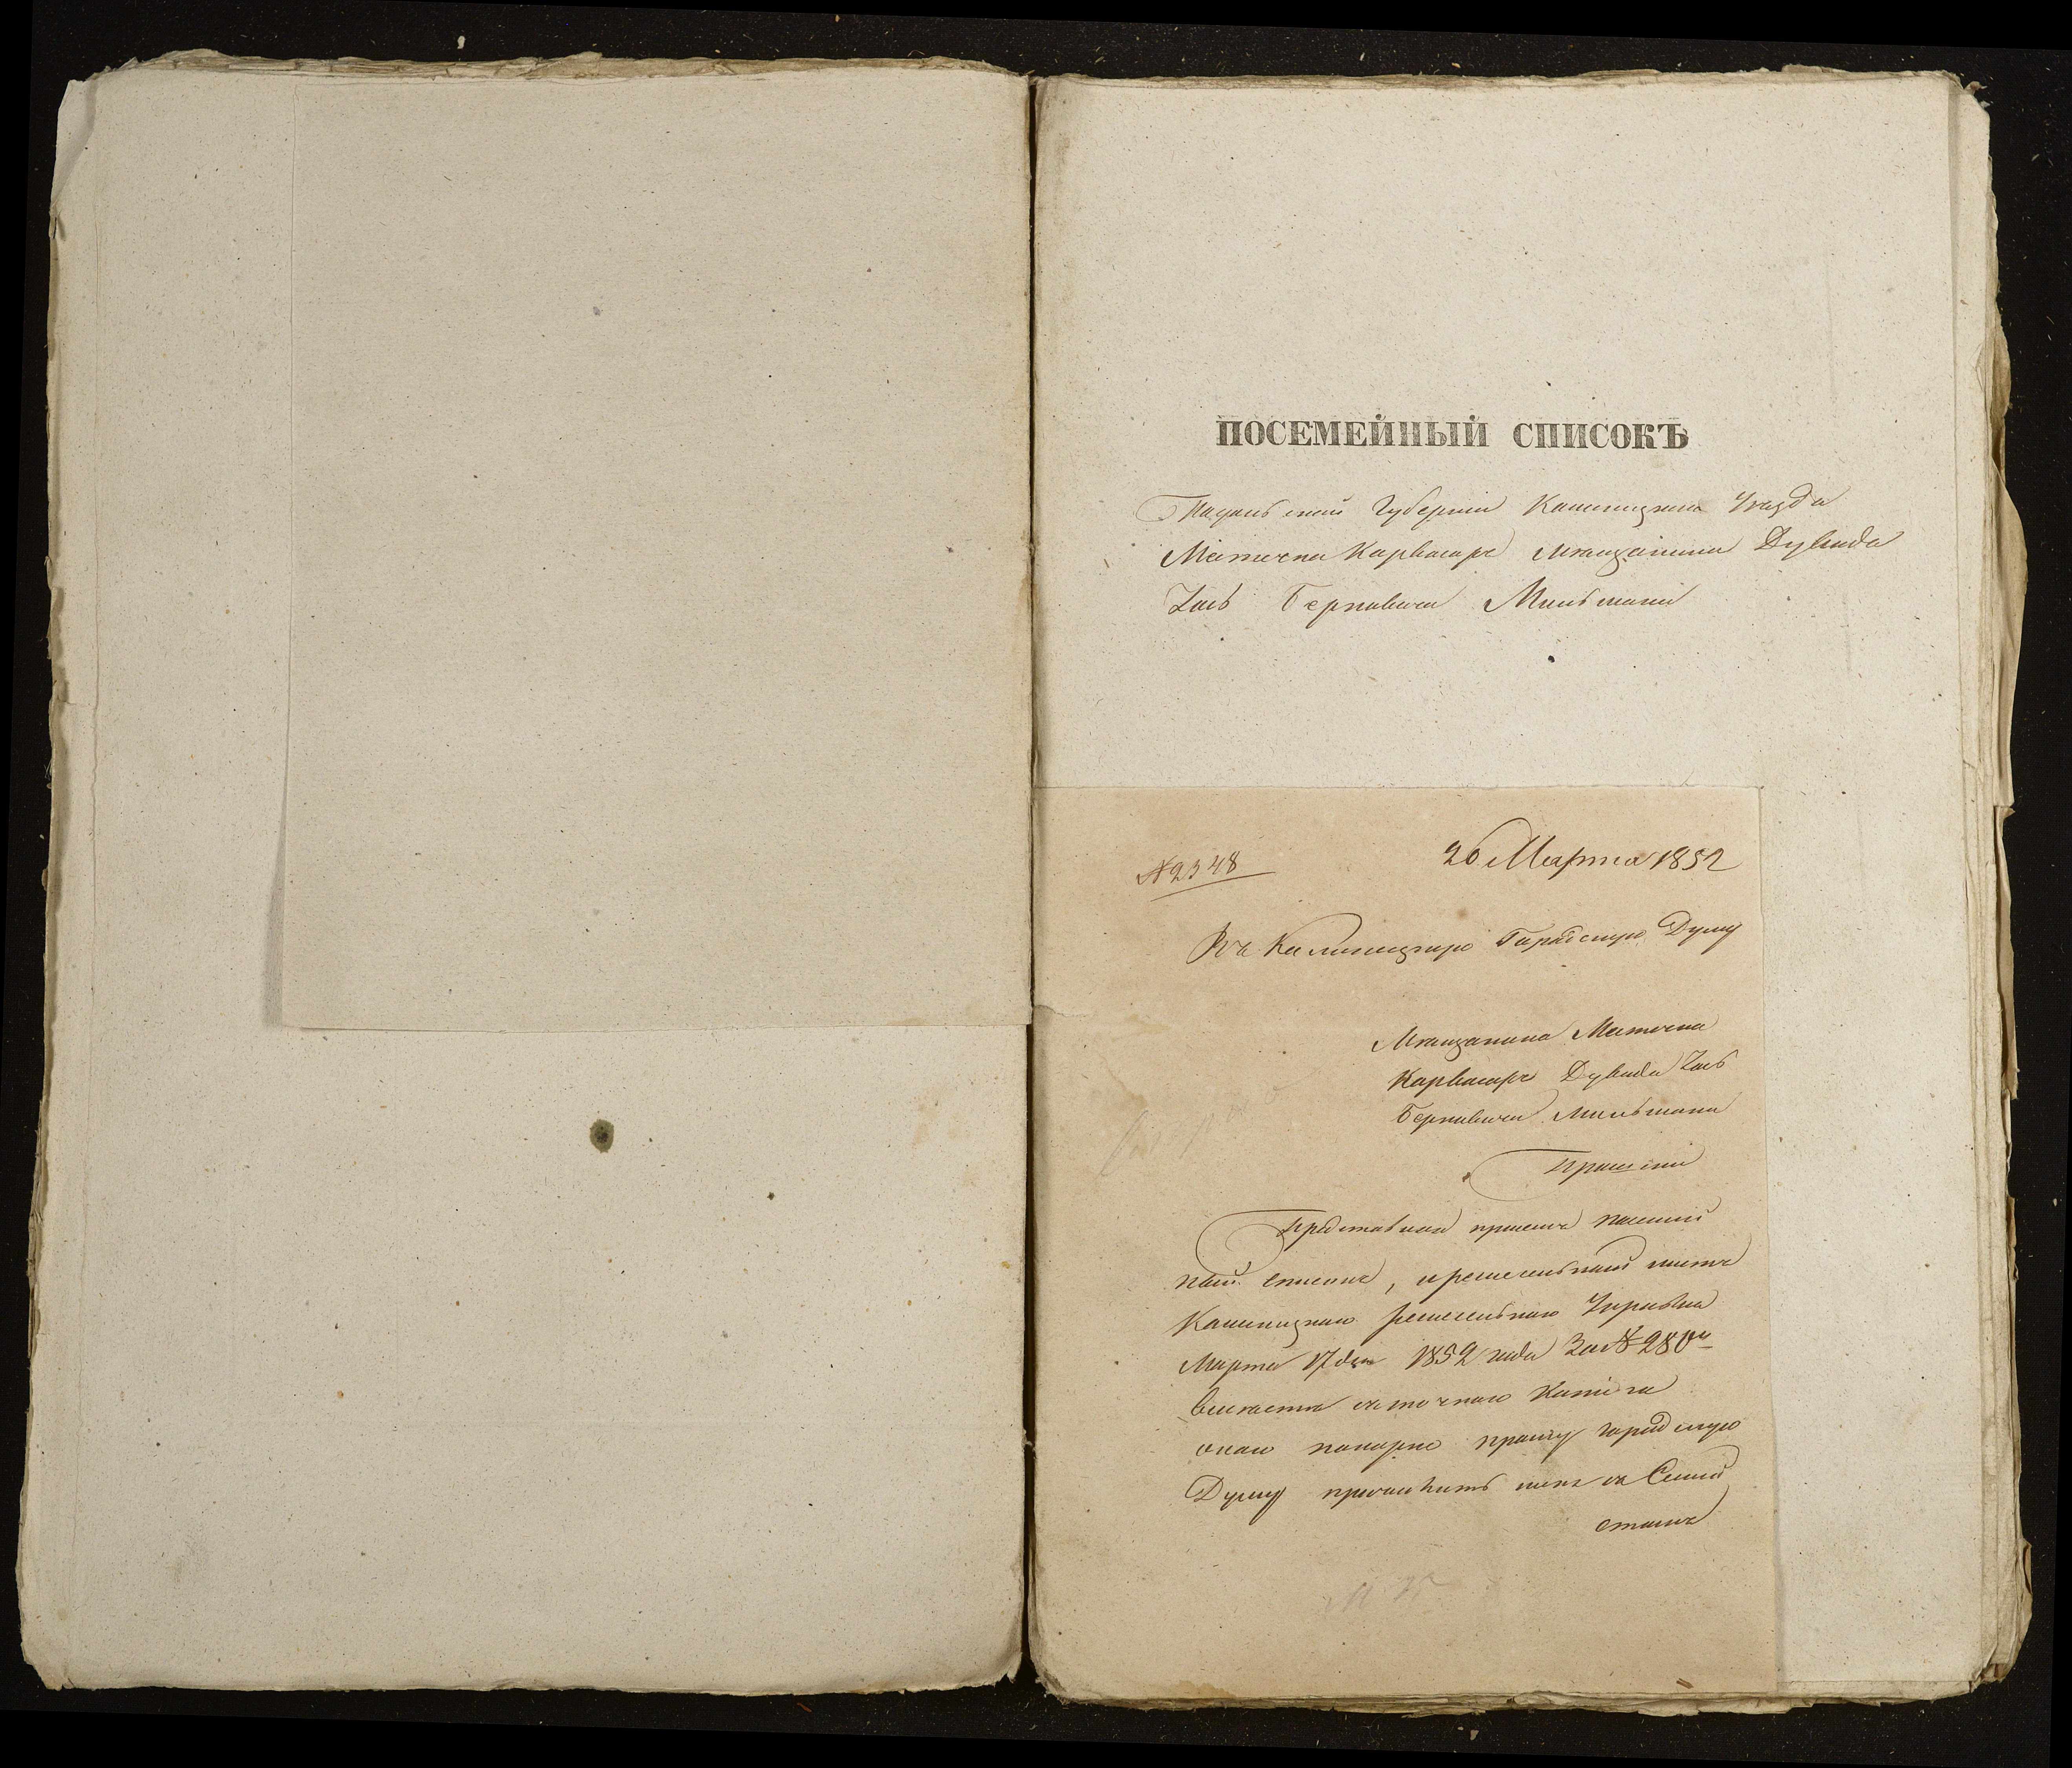 ПОСЕМЕЙНЫЙ СПИСОКЪ
Подольской Губерніи Каменецкаго Уезда
Местечка Карвасаръ мещанина Дувида
Берковича Мильмана
№2348
26 Марта 1852
Въ Каменецкую Городскую Думу
Мещанина Местечка
Карвасаръ Дувида
Берковича Мильмана
Прошеніе
Представляя присемъ посемей
ный списокъ, и ремесленный листъ
Каменецкой ремесленной Управы
Марта 17 дня 1852 года За №280м
покорно прошу городскую
Думу причислить меня съ Семей
ствомъ